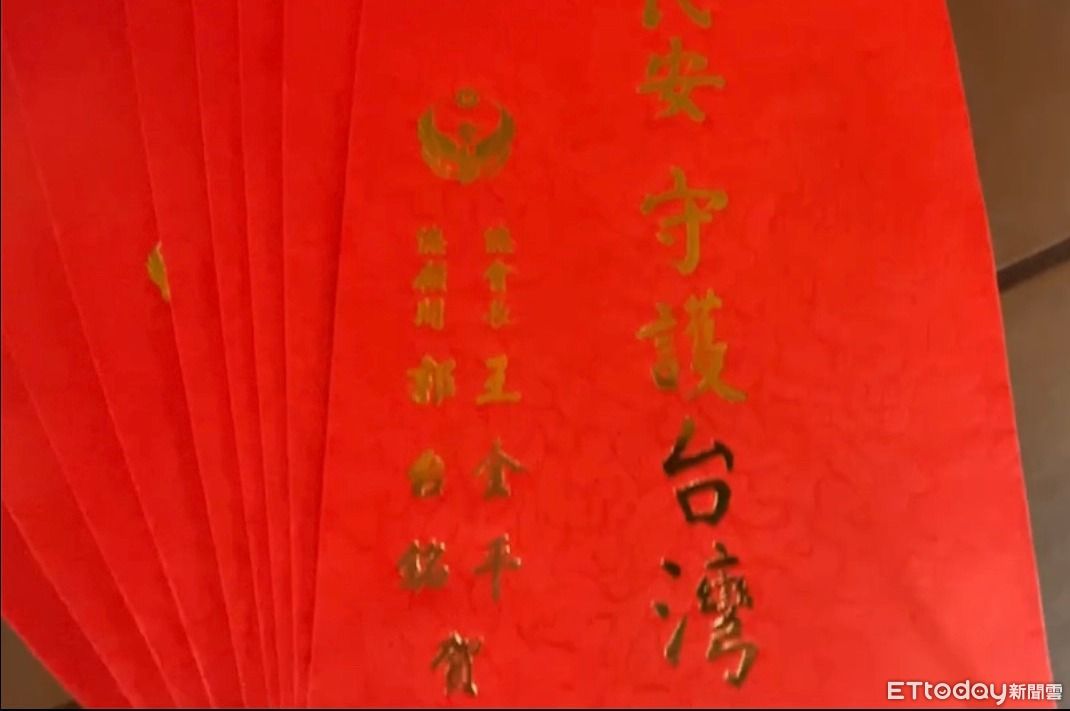 民安 守護台灣
總會長 王金平
總顧問 郭台銘
賀
ETtoday新聞雲